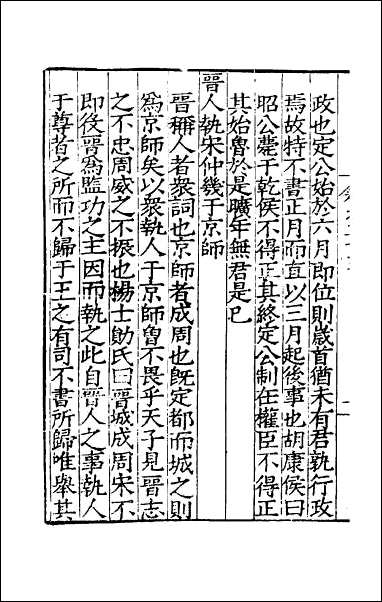 政也定公始於六月即位則歳首猶未有君孰行政
焉故特不書正月而直以三月起後事也胡康侯曰
昭公薨于乾侯不得正其終定公制在權臣不得正
其始魯於是曠年無君是已
晉人執宋仲幾于京師
晉稱人者衆詞也京師者成周也旣定都而城之則
爲京師矣以衆執人于京師魯不畏乎天子見晉志
之不忠周威之不振也楊士勛氏曰晉城成周宋不
即役晉爲監功之主因而執之此自晉人之事執人
于尊者之所而不歸于王之有司不書所歸唯舉其